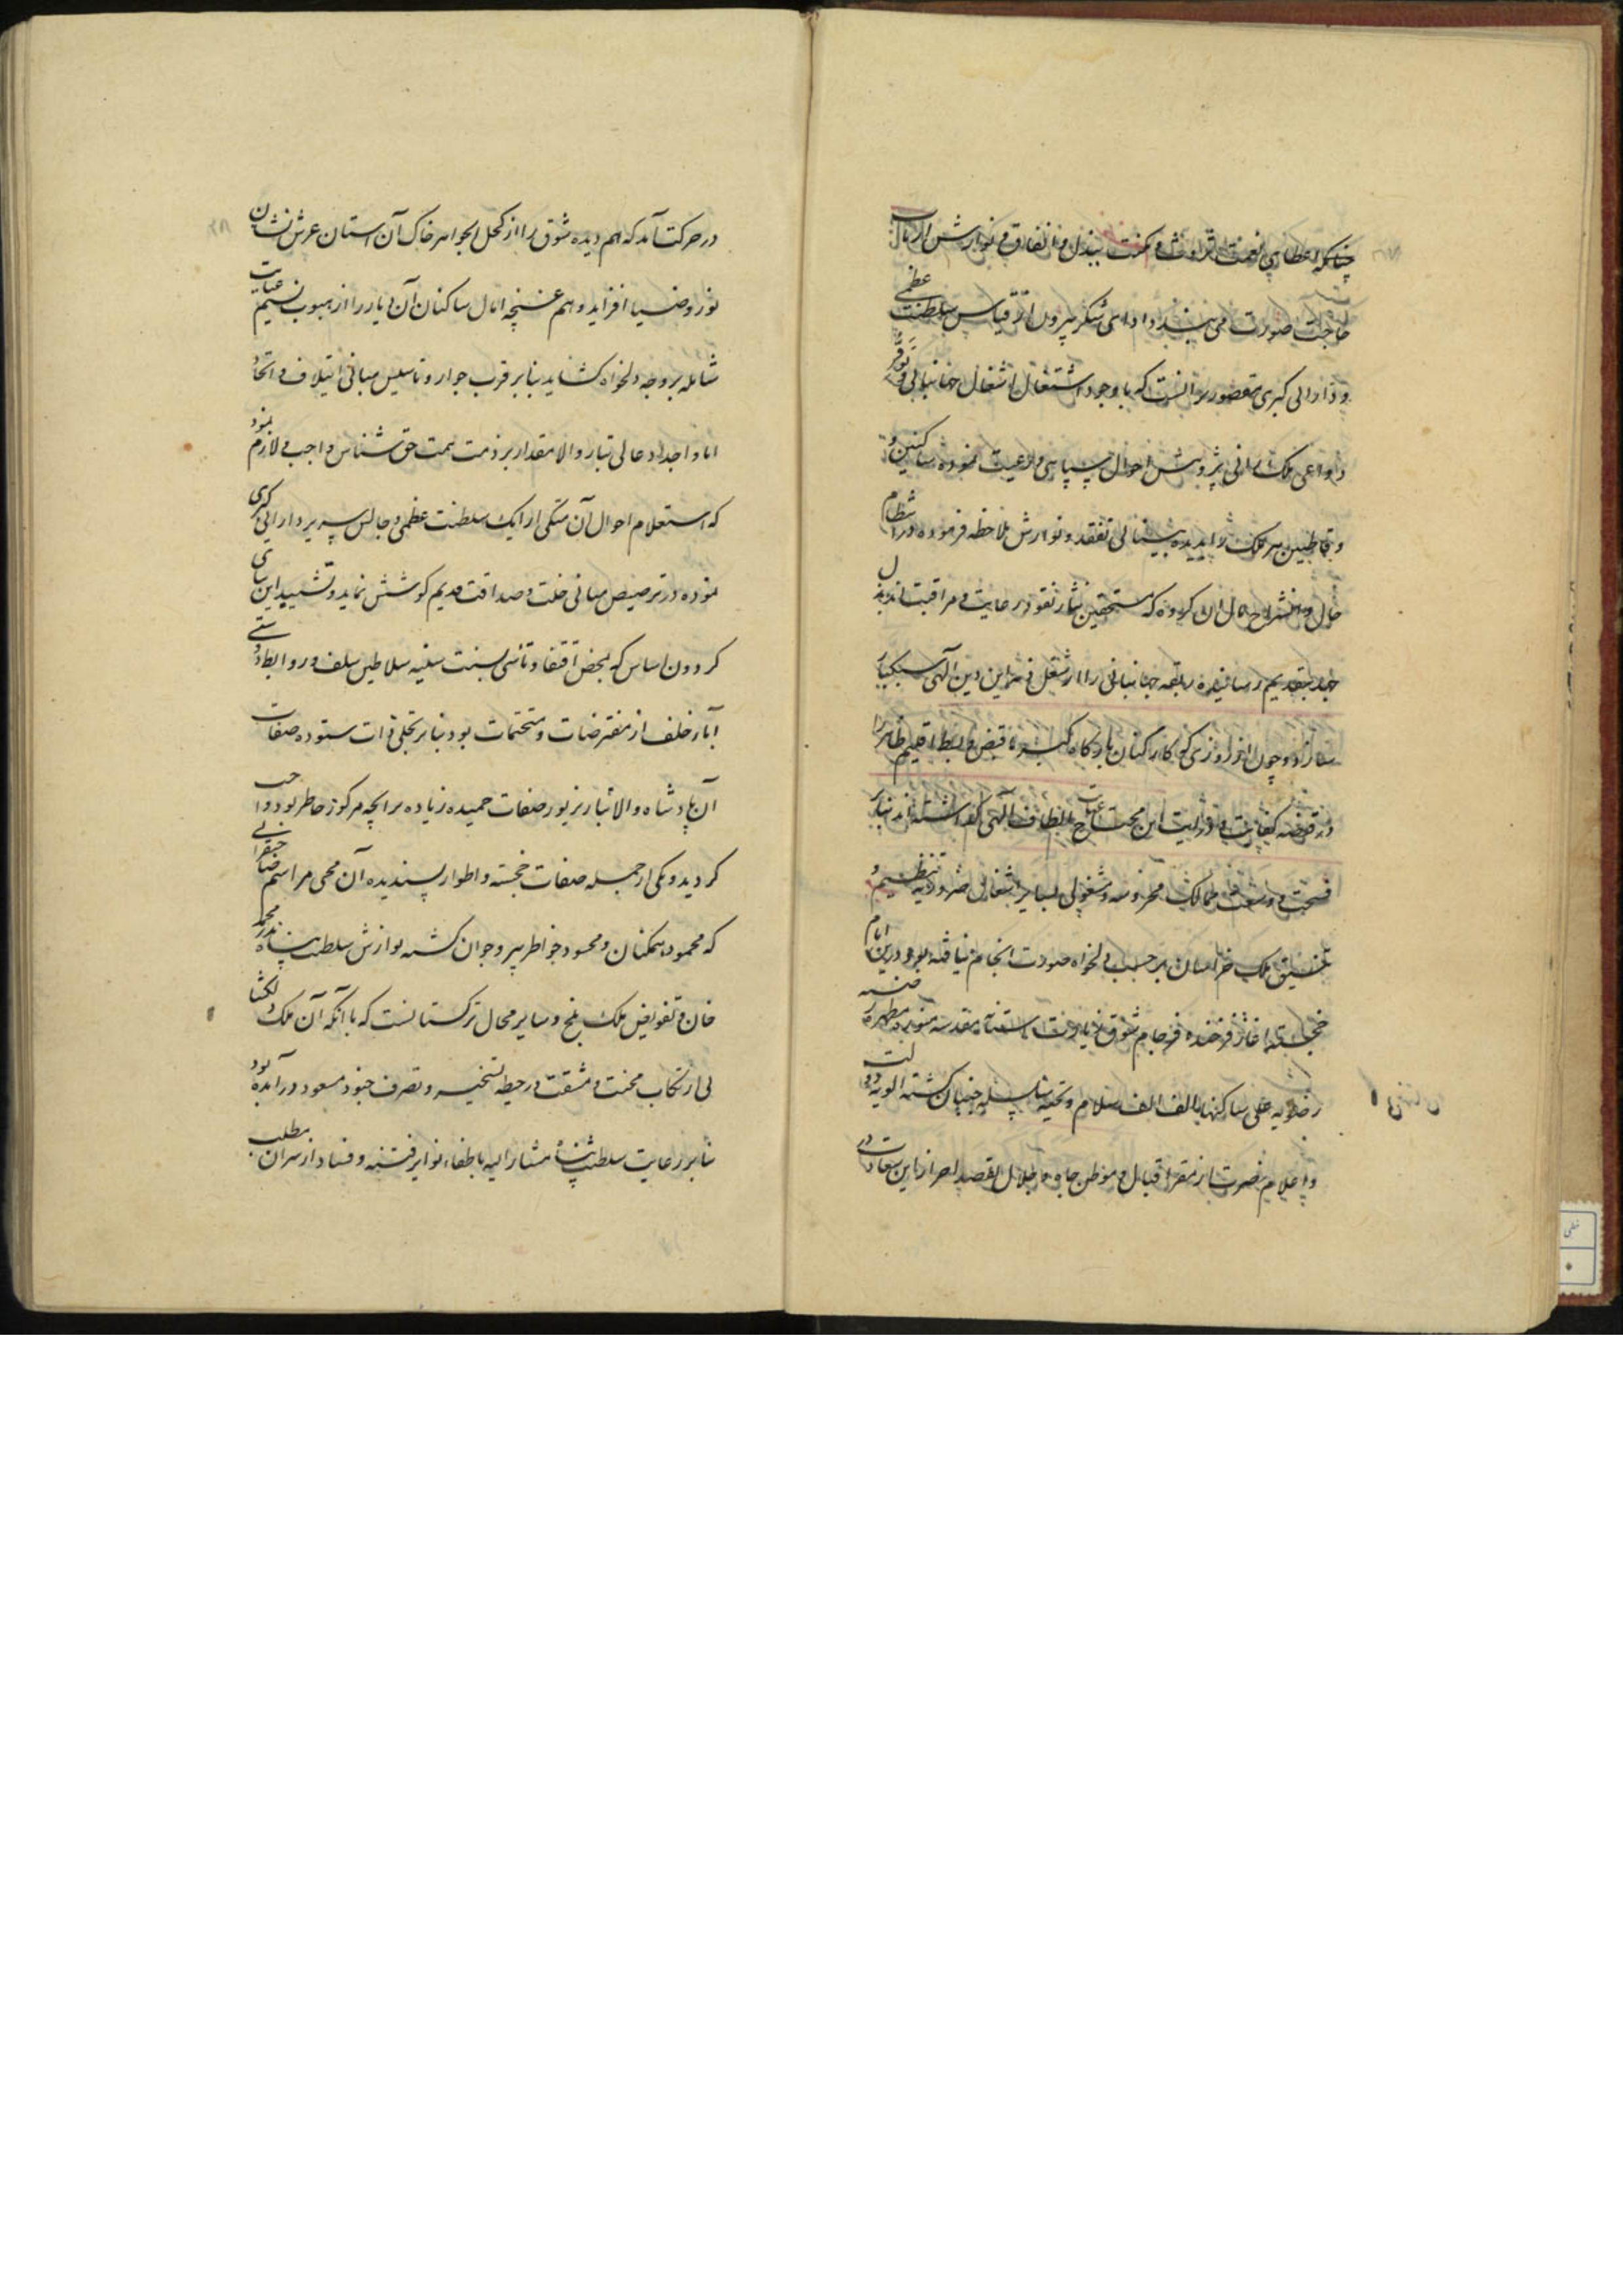 چنانکه اعطای نعمت ثروت و مکنت ببذل و انفاق و نوازش ارباب
حاجت صورت می بندد ادای شکر بیرون از قیاس سلطنت عظمی
و دارائی کبری مقصور بر آنست که با وجود اشتغال اشغال جهانبانی و توفر
دواعی ملک رانی پژوهش احوال سپاهی و رعیت نموده ساکنین و
قاطبین هر ملک را بدیده بینائی تفقد و نوازش ملاحظه فرموده در انتظام
حال و انشراح بال آن گروه که مستحقین نثار نقود رعایت و مراقبت اند بذل
جهد بتقدیم رسانیده ربقه جهانبانی را از شغل این دین الهی سبکبار
سازد و چون از روزی که کارکنان بارگاه قبض و بسط اقلیم ظاهر را
در قبضه کفایت و درایت این محتاج عنایات الطاف الهی گذاشته اند بنابر
فسحت و وسعت ممالک محروسه و مشغولی بسایر اشغال ضروریه تنظیم و
تنسیق ملک خراسان بر حسب دلخواه صورت انجام نیافته بود درین ایام
خجسته آغاز فرخنده فرجام شوق زیارت آستانه مقدسه منوره مطهره رضیه
رضویه علی ساکنها الف الف سلام و تحیه سلسله جنبان گشته الویه دولت
و اعلام نصرت از مقر اقبال و موطن جاه و جلال بقصد احراز این سعادت
در حرکت آمد که هم دیده شوق را از کحل الجواهر خاک آن آستان عرش نشان
نور و ضیا افزاید و هم غنچه امال ساکنان آن دیار را از هبوب نسیم عنایت
شامله بر وجه دلخواه کشاید بنابر قرب جوار و تاسیس مبانی ایتلاف و اتحاد
ابا و اجداد عالی تبار والا مقدار بر ذمت همت حق شناس واجب و لازم نمود
که استعلام احوال آن متکی ارایک سلطنت عظمی و جالس سریر دارائی کبری
نموده در ترصیص مبانی خلت و صداقت قدیم کوشش نماید و تشیید این بنای
کردون اساس که بمحض اقتفا و تاسی بسنت سنیه سلاطین سلف و روابط دوستی
آباء خلف از مفترضات و متحتمات بود بنابر تحلی ذات ستوده صفات
آن پادشاه والا تبار بزیور صفات حمیده زیاده بر آنچه مرکوز خاطر بود واجب
کردید و یکی از جمله صفات خجسته و اطوار پسندیده آن محی مراسم جهانبانی
که محمود همکنان و محسود خواطر پیر و جوان گشته نوازش سلطنت پناه نذر محمد
خان و تفویض ملک بلخ و سایر محال ترکستانست که با آنکه آن ملک دلکشا
بی ارتکاب محنت و مشقت در حیطه تسخیر و تصرف جنود مسعود در آمده بود
بنابر رعایت سلطنت پناه مشار الیه باطفاء نوایر فتنه و فساد از سر آن مطلب